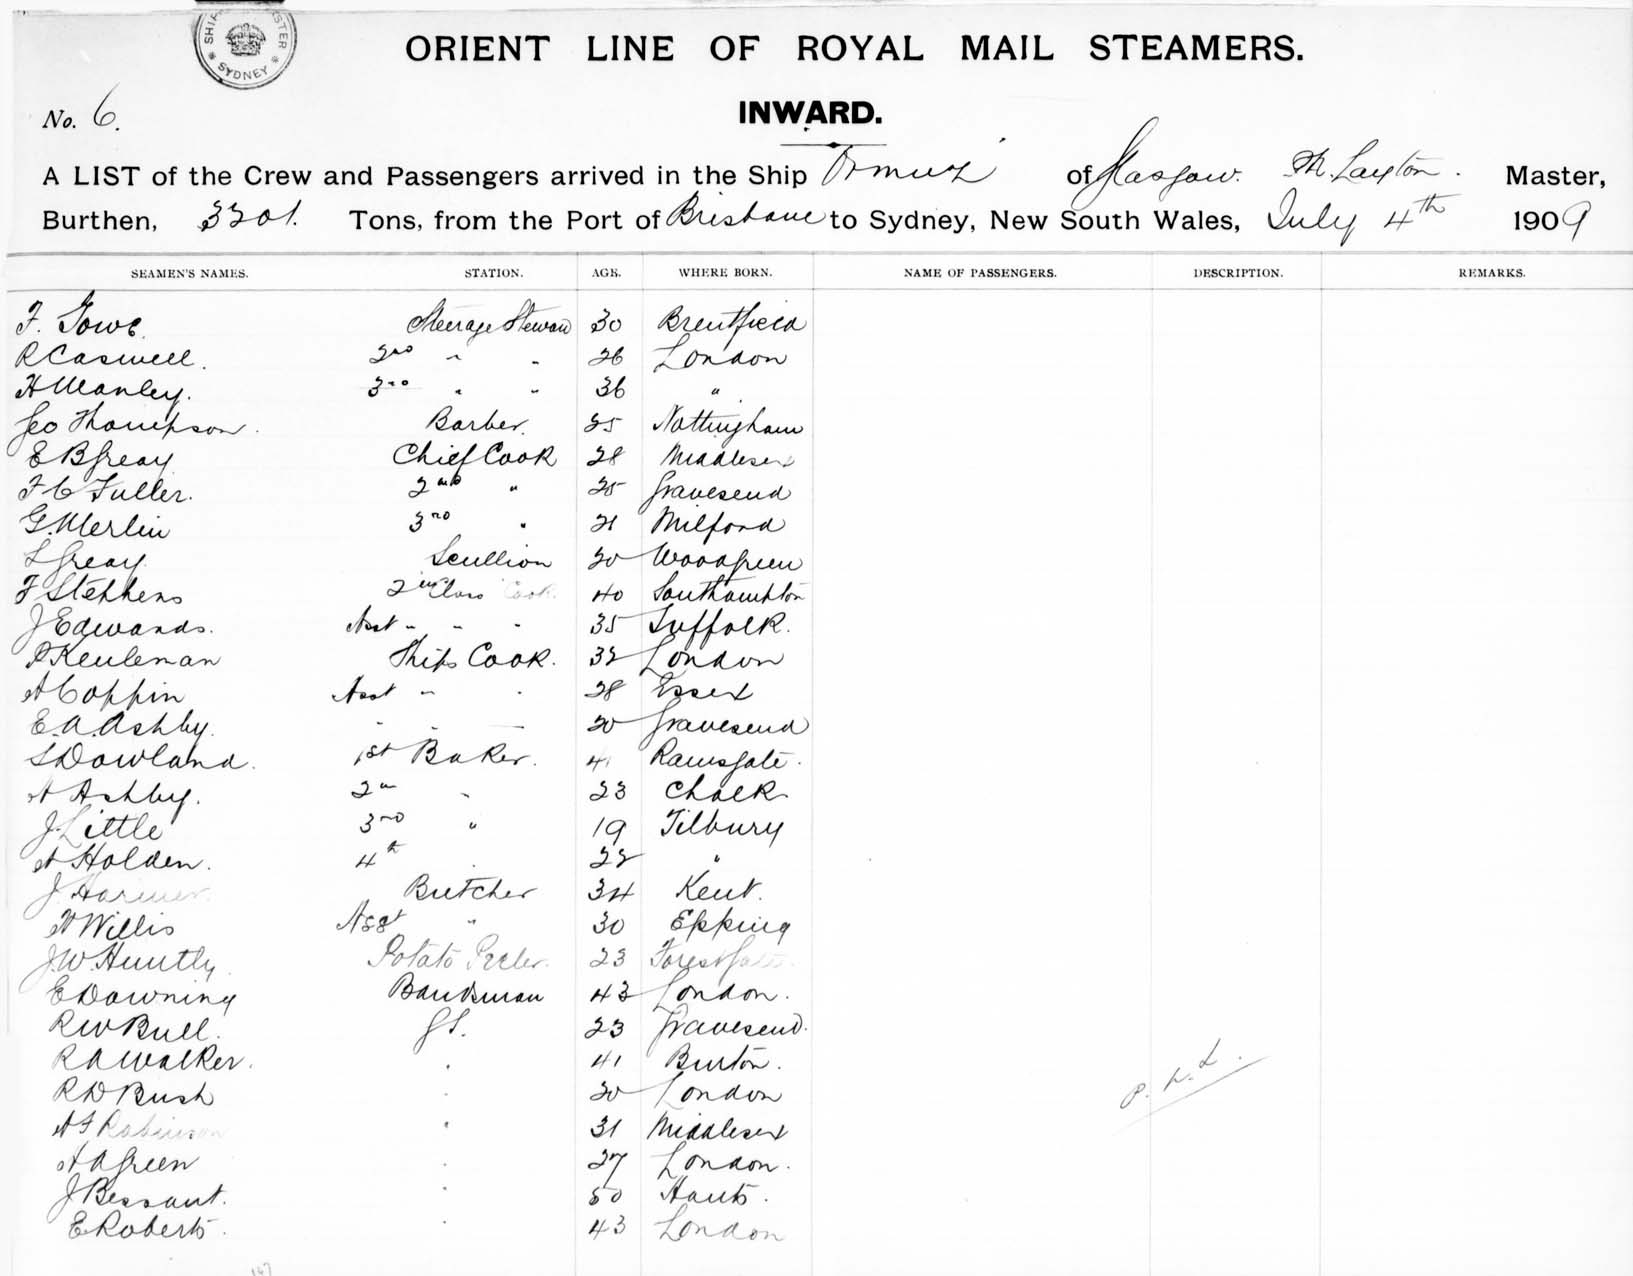 SYDNEY
ORIENT LINE OF ROYAL MAIL STEAMERS.
No. 6.
INWARD.
A LIST of the Crew and Passengers arrived in the Ship Ormuz of Glasgow. M. Layton. Master,
Burthen, 3201. Tons, from the Port of Brisbane to Sydney, New South Wales, July 4th 1909
SEAMEN'S NAMES. STATION. AGE. WHERE BORN. NAME OF PASSENGERS. DESCRIPTION. REMARKS.
F. Gowe. Steerage Steward 30 Brentfield
R Caswell. 2nd " " 26 London
H Manley. 3rd " " 36 "
Geo Thompson. Barber. 25 Nottingham
E B Greay Chief Cook 28 Middlesex
F C Fuller. 2nd " 25 Gravesend
G. Merlin 3rd " 21 Milford
L Greay. Scullion 20 Woodgreen
F Stephens 2nd Class Cook. 40 Southampton
J Edwards. Asst " " " 35 Suffolk.
P Keuleman Ships Cook. 32 London
A Coppin Asst " " 28 Essex
E. A. Ashby. " " 20 Gravesend
S Dowland. 1st Baker. 41 Ramsgate.
A Ashby. 2n " 23 Chalk
J. Little 3rd " 19 Tilbury
A Holden. 4th " 22 "
J. Harmer. Butcher 34 Kent.
H Willis Asst " 30 Epping
J. W. Huntly. Potato Peeler. 23 Forest Gate.
E Downing Bandsman 43 London.
R W Bull. GS. 23 Gravesend.
R A Walker. " 41 Burton.
R D Bush " 20 London
A F Robinson " 31 Middlesex
A A Green " 27 London.
J Bessant. " 50 Hants.
E Roberts. " 43 London